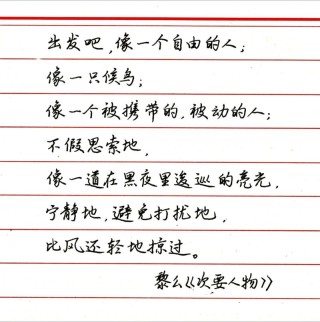 出发吧,像一个自由的人;
像一只候鸟;
像一个被携带的,被动的人;
不假思索地,
像一道在黑夜里逡巡的亮光,
宁静地,避免打扰地,
比风还轻地掠过。
黎幺《次要人物》